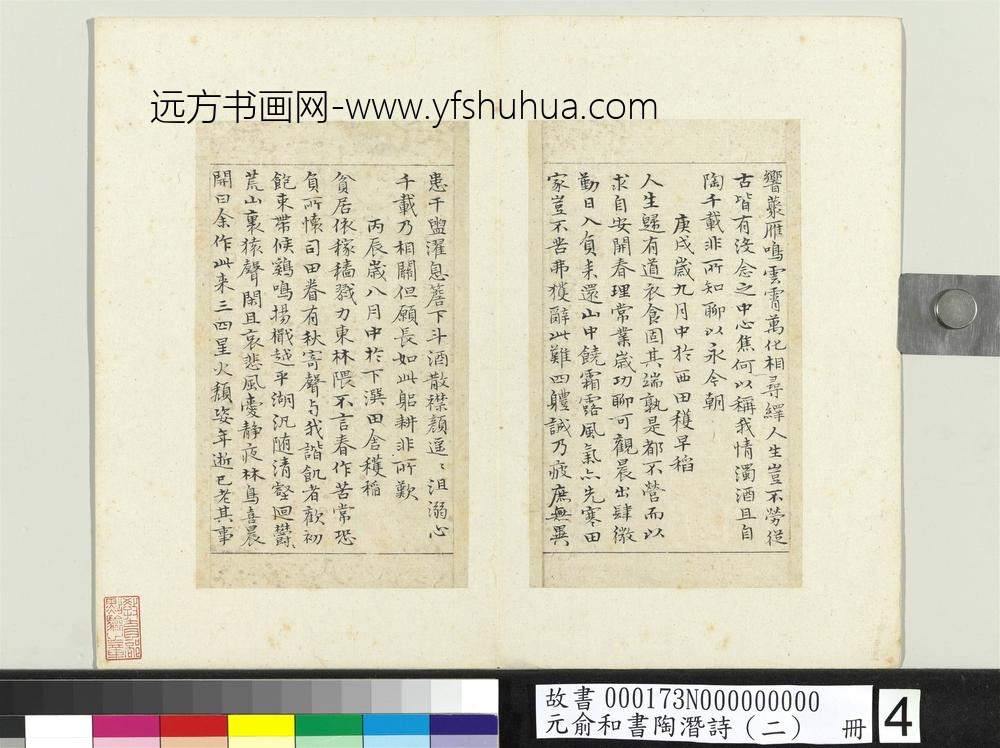 远方书画网-www.yfshuhua.com
響叢雁鳴雲霄萬化相尋繹人生豈不勞從
古皆有沒念之中心焦何以稱我情濁酒且自
陶千載非所知聊以永今朝
庚戌歲九月中於西田穫早稻
人生歸有道衣食固其端孰是都不營而以
求自安開春理常業歲功聊可觀晨出肆微
勤日入負耒還山中饒霜露風氣亦先寒田
家豈不苦弗獲辭此難四體誠乃疲庶無異
患干盥濯息簷下斗酒散襟顏遥〻沮溺心
千載乃相關但願長如此躬耕非所歎
丙辰歲八月中於下潠田舍穫稻
貧居依稼穡戮力東林隈不言春作苦常恐
負所懷司田眷有秋寄聲与我諧飢者歡初
飽束帶候鷄鳴揚檝越平湖汎随清壑迴欝〻
荒山裏猿聲閑且哀悲風愛静夜林鳥喜晨
開曰余作此来三四星火頹姿年逝已老其事
故書 000173N000000000
元俞和書陶潛詩（二） 冊
4